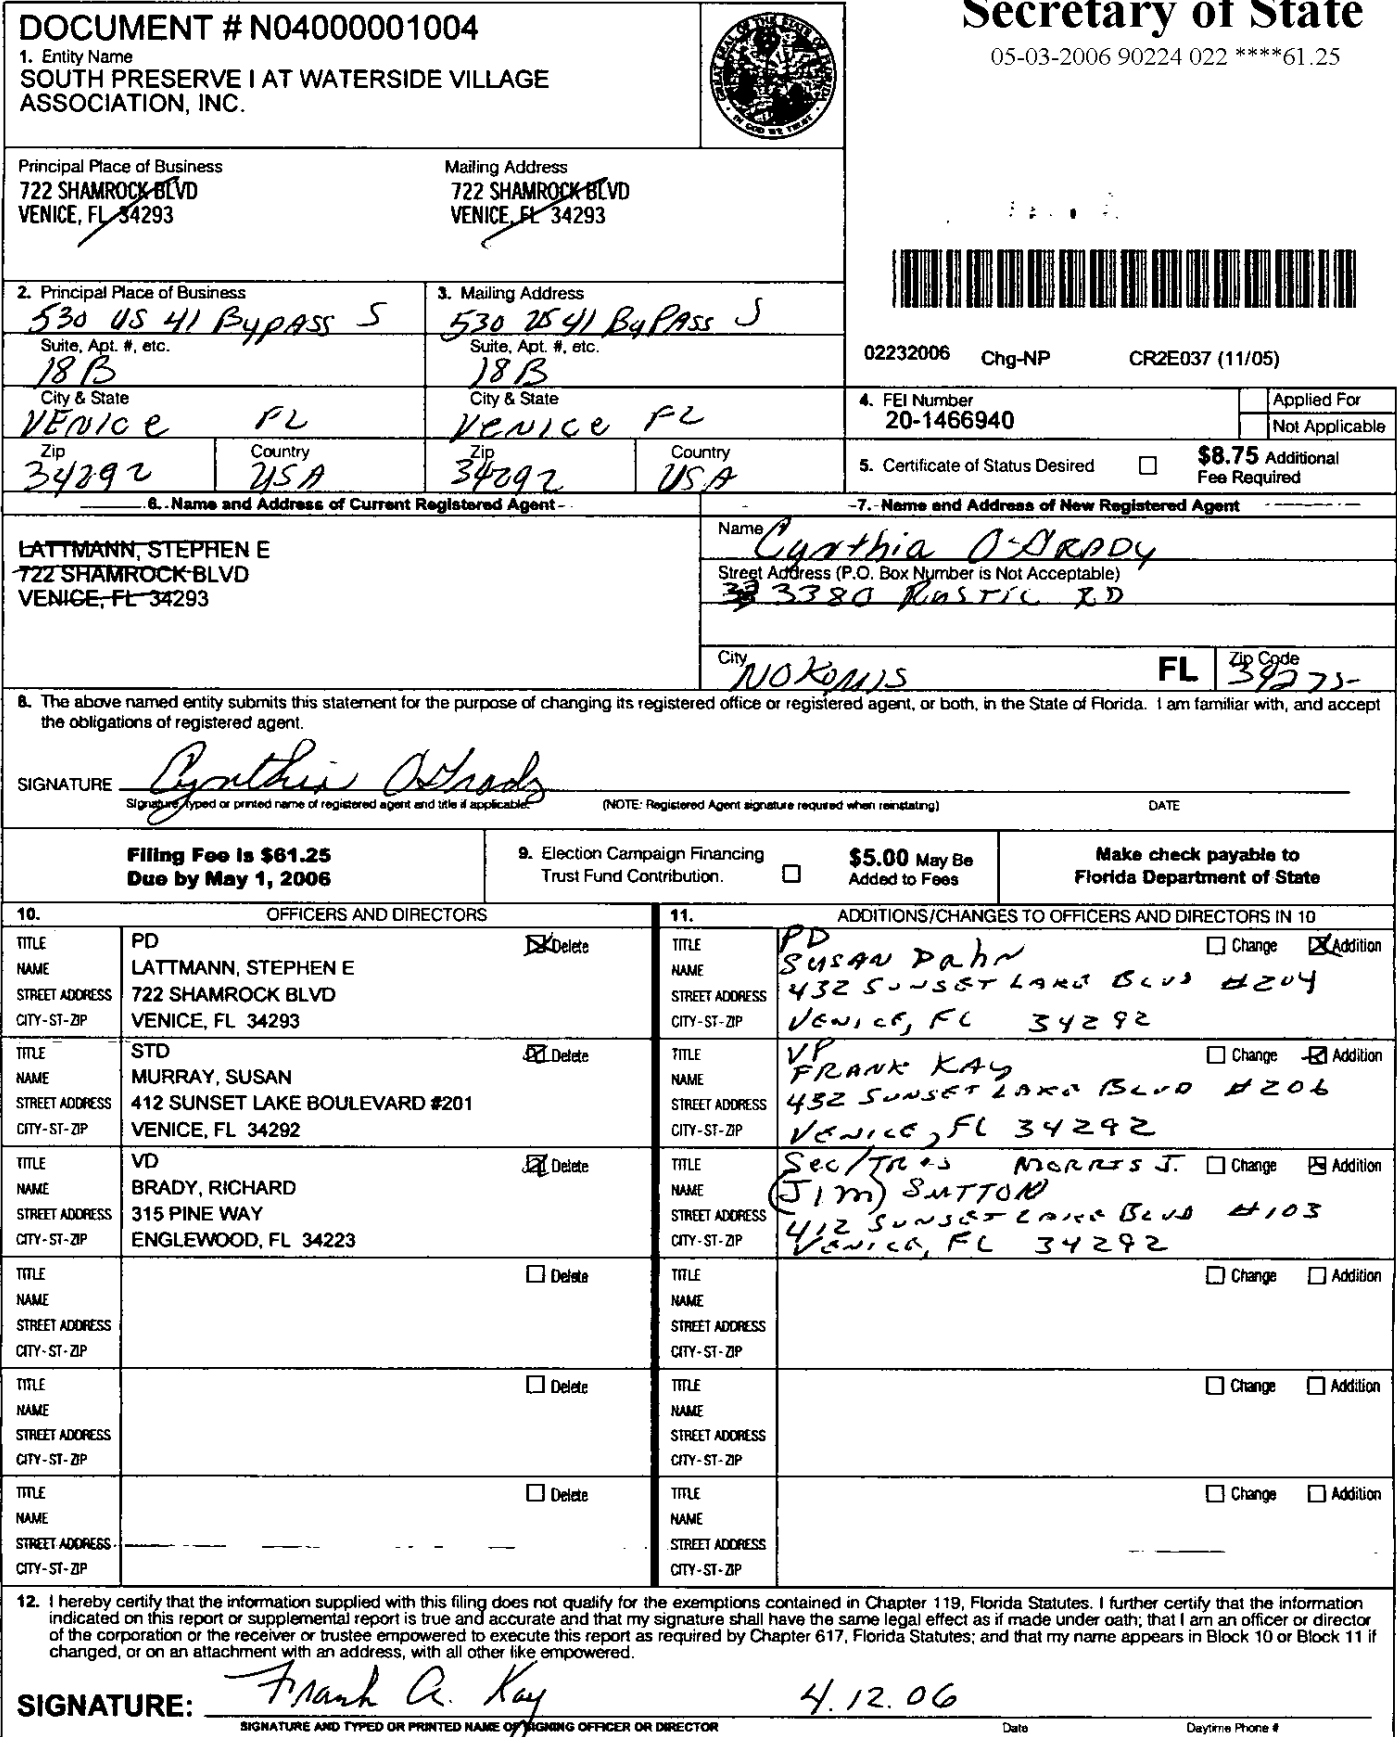 Secretary of State
05-03-2006 90224 022 ****61.25
DOCUMENT # N04000001004
1. Entity Name
SOUTH PRESERVE I AT WATERSIDE VILLAGE
ASSOCIATION, INC.
Principal Place of Business
722 SHAMROCK BLVD
VENICE, FL 34293
Mailing Address
722 SHAMROCK BLVD
VENICE, FL 34293
2. Principal Place of Business
530 US 41 Bypass S
Suite, Apt. #, etc.
18B
City & State
VENICE FL
Zip
34292
Country
USA
3. Mailing Address
530 US 41 ByPass S
Suite, Apt. #, etc.
18B
City & State
VENICE FL
Zip
34292
Country
USA
02232006 Chg-NP CR2E037 (11/05)
4. FEI Number
20-1466940
Applied For
Not Applicable
5. Certificate of Status Desired
$8.75 Additional
Fee Required
6. Name and Address of Current Registered Agent
LATTMANN, STEPHEN E
722 SHAMROCK BLVD
VENICE, FL 34293
7. Name and Address of New Registered Agent
Name Cynthia O'GRADY
Street Address (P.O. Box Number is Not Acceptable)
3380 Rustic RD
City NOKOMIS FL Zip Code 34275
8. The above named entity submits this statement for the purpose of changing its registered office or registered agent, or both, in the State of Florida. I am familiar with, and accept
the obligations of registered agent.
SIGNATURE Cynthia O'Grady
Signature, typed or printed name of registered agent and title if applicable. (NOTE: Registered Agent signature required when reinstating) DATE
Filing Fee is $61.25
Due by May 1, 2006
9. Election Campaign Financing
Trust Fund Contribution.
$5.00 May Be
Added to Fees
Make check payable to
Florida Department of State
10. OFFICERS AND DIRECTORS
TITLE PD Delete
NAME LATTMANN, STEPHEN E
STREET ADDRESS 722 SHAMROCK BLVD
CITY-ST-ZIP VENICE, FL 34293
TITLE STD Delete
NAME MURRAY, SUSAN
STREET ADDRESS 412 SUNSET LAKE BOULEVARD #201
CITY-ST-ZIP VENICE, FL 34292
TITLE VD Delete
NAME BRADY, RICHARD
STREET ADDRESS 315 PINE WAY
CITY-ST-ZIP ENGLEWOOD, FL 34223
TITLE Delete
NAME
STREET ADDRESS
CITY-ST-ZIP
TITLE Delete
NAME
STREET ADDRESS
CITY-ST-ZIP
TITLE Delete
NAME
STREET ADDRESS
CITY-ST-ZIP
11. ADDITIONS/CHANGES TO OFFICERS AND DIRECTORS IN 10
TITLE PD Change Addition
NAME SUSAN Dahn
STREET ADDRESS 432 SUNSET LAKE BLVD #204
CITY-ST-ZIP VENICE, FL 34292
TITLE VP Change Addition
NAME FRANK KAY
STREET ADDRESS 432 SUNSET LAKE BLVD #206
CITY-ST-ZIP VENICE, FL 34292
TITLE Sec/TRES MORRIS J. Change Addition
NAME (JIM) SUTTON
STREET ADDRESS 412 SUNSET LAKE BLVD #103
CITY-ST-ZIP VENICE, FL 34292
TITLE Change Addition
NAME
STREET ADDRESS
CITY-ST-ZIP
TITLE Change Addition
NAME
STREET ADDRESS
CITY-ST-ZIP
TITLE Change Addition
NAME
STREET ADDRESS
CITY-ST-ZIP
12. I hereby certify that the information supplied with this filing does not qualify for the exemptions contained in Chapter 119, Florida Statutes. I further certify that the information
indicated on this report or supplemental report is true and accurate and that my signature shall have the same legal effect as if made under oath; that I am an officer or director
of the corporation or the receiver or trustee empowered to execute this report as required by Chapter 617, Florida Statutes; and that my name appears in Block 10 or Block 11 if
changed, or on an attachment with an address, with all other like empowered.
SIGNATURE: Frank A. Kay 4.12.06
SIGNATURE AND TYPED OR PRINTED NAME OF SIGNING OFFICER OR DIRECTOR Date Daytime Phone #